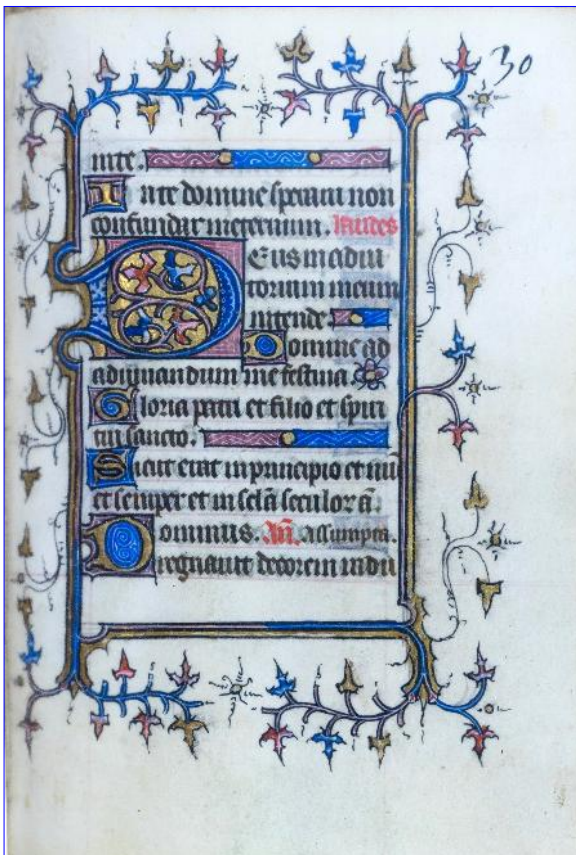 30
nite.
In te domine speravi non
confundar in eternum. laudes
Deus in adiu
torium meum
intende.
Domine ad
adiuuandum me festina.
Gloria patri et filio et spiri
tui sancto.
Sicut erat in principio et nūc
et semper et in sc̄la seculor̄ a̅.
Dominus. Añ. assumpta.
regnauit decorem indu